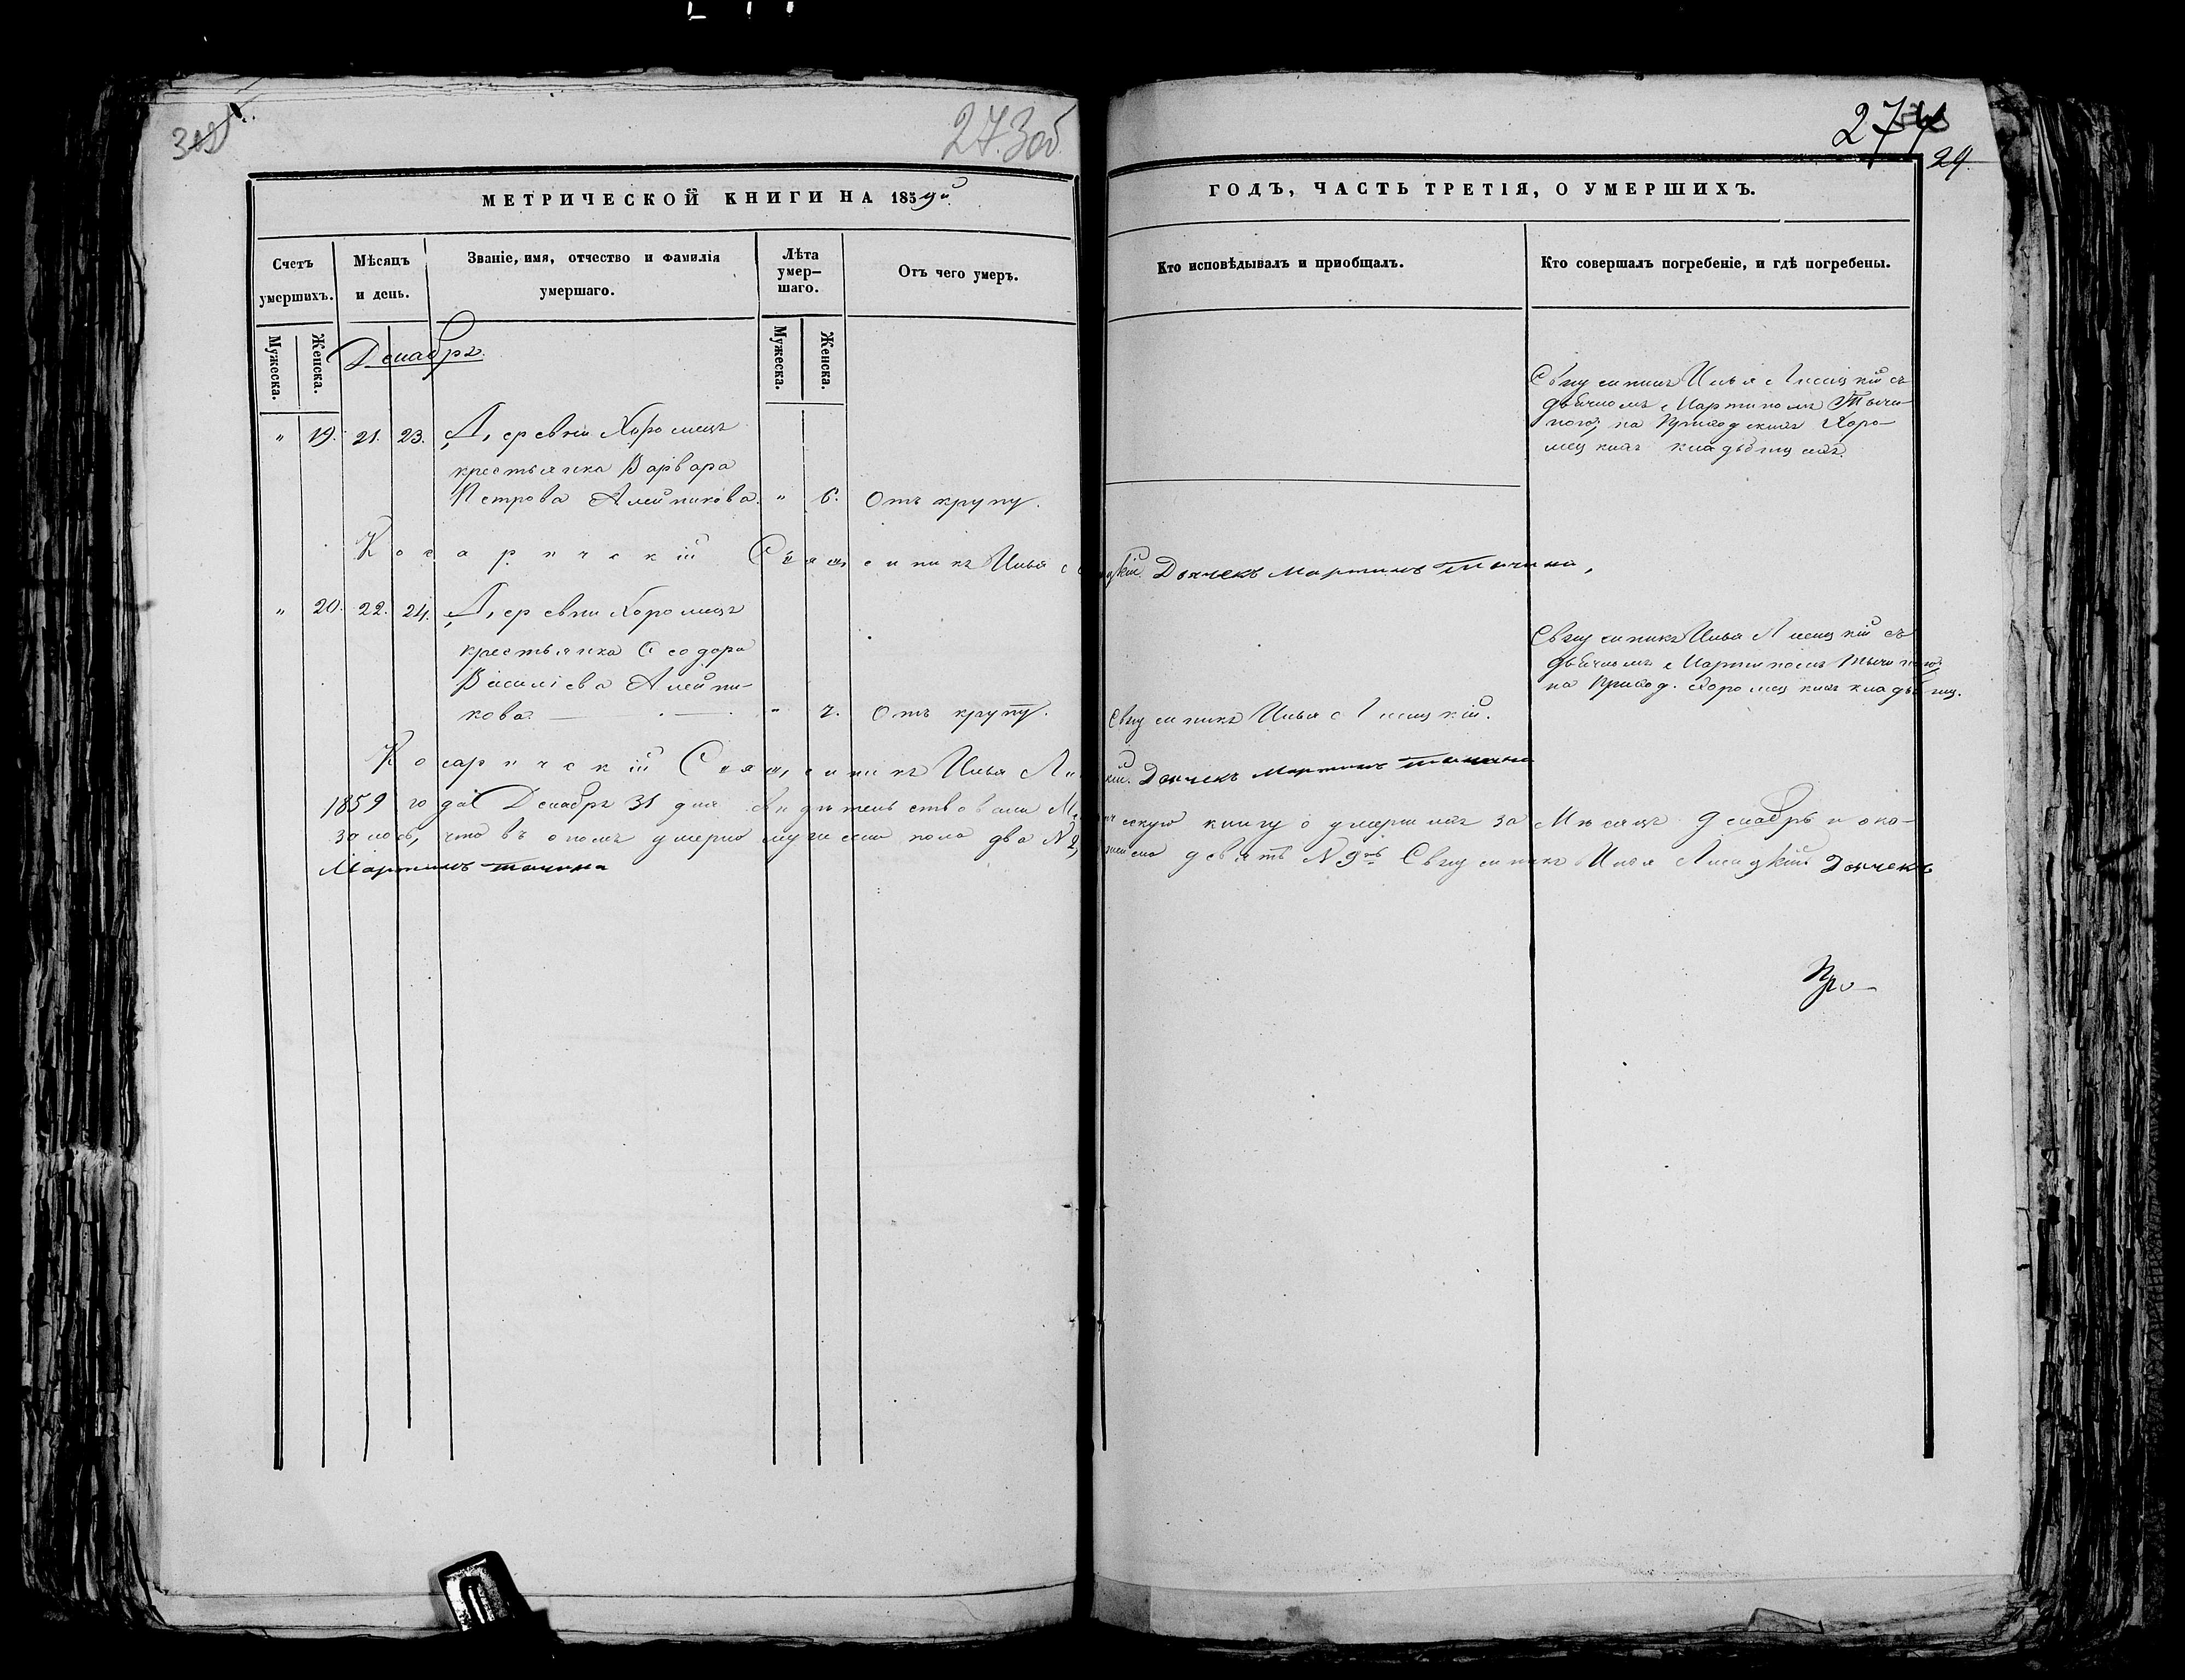 273 об
274
29.
МЕТРИЧЕСКОЙ КНИГИ НА 1859й
ГОДЪ, ЧАСТЬ ТРЕТІЯ, О УМЕРШИХЪ.
Счетъ умершихъ.
Мѣсяцъ и день.
Званіе, имя, отчество и фамилія умершаго.
Лѣта умер-шаго.
Отъ чего умеръ.
Кто исповѣдывалъ и пріобщалъ.
Кто совершалъ погребеніе, и гдѣ погребены.
Мужеска.
Женска.
Мужеска.
Женска.
Декабрь.
" 19. 21. 23. Деревни Хоромецъ
крестьянка Варвара
Петрова Алейникова. " 6. Отъ крупу.
Свящ енникъ Илья Лисицкій съ
дьячкомъ Мартиномъ Тычи-
ною, на Приходскомъ Хоро-
мецкомъ кладбищѣ.
Косаричскій Священникъ Илья Лисицкій. Дьячекъ Мартинъ Тычина,
" 20. 22. 24. Деревни Хоромецъ
крестьянка Ѳеодора
Василіева Алейни-
кова. " 7. Отъ крупу.
Священникъ Илья Лисицкій.
Священникъ Илья Лисицкій съ
дьячкомъ Мартиномъ Тычиною,
на Приход. Хоромецкомъ кладбищ.
Косаричскій Священникъ Илья Лисицкій. Дьячекъ Мартинъ Тычина
1859 года Декабря 31 дня Свидѣтельствовали Метрическую книгу о умершихъ за Мѣсяцъ Декабрь и ока-
залось, что въ ономъ умерло мужеска пола два № 2, женска девять № 9ть Священникъ Илья Лисицкій Дьячекъ
Мартинъ Тычина